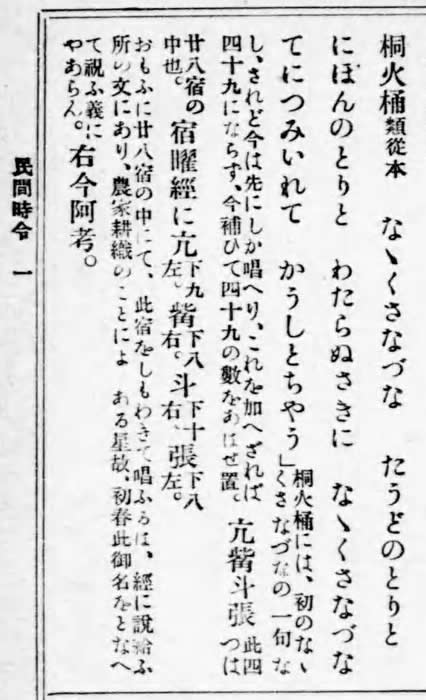 桐火桶類從本　なゝくさなづな　たうどのとりと
にほんのとりと　わたらぬさきに　なゝくさなづな
てにつみいれて　かうしとちやう」桐火桶には、初のなゝ
くさなづなの一句な
し、されど今は先にしか唱へり、これを加へざれば
四十九にならず、今補ひて四十九の數をあはせ置。亢觜斗張 此四
つは
廿八宿の
中也。宿曜經に亢下九左。觜下八右。斗下十右張下八左。
おもふに廿八宿の中にて、此宿をしもわきて唱ふるは、經に說給ふ
所の文にあり、農家耕織のことによ　ある星故、初春此御名をとなへ
て祝ふ義に
やあらん。右今阿考。
民間時令　一